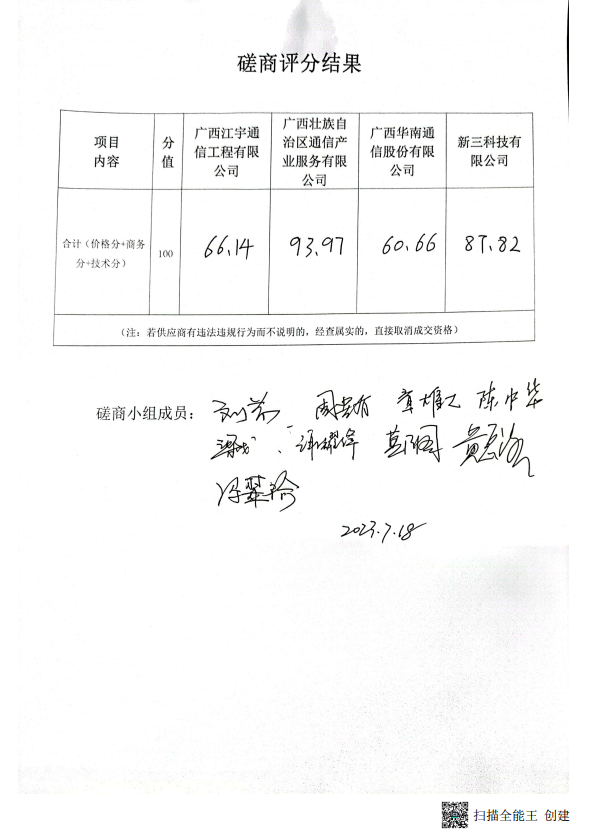 磋商评分结果
项目
内容
分
值
广西江宇通
信工程有限
公司
广西壮族自
治区通信产
业服务有限
公司
广西华南通
信股份有限
公司
新三科技有
限公司
合计（价格分+商务
分+技术分）
100
66.14
93.97
60.66
87.82
（注：若供应商有违法违规行为而不说明的，经查属实的，直接取消成交资格）
磋商小组成员：
陈中华
2023.7.18
扫描全能王 创建